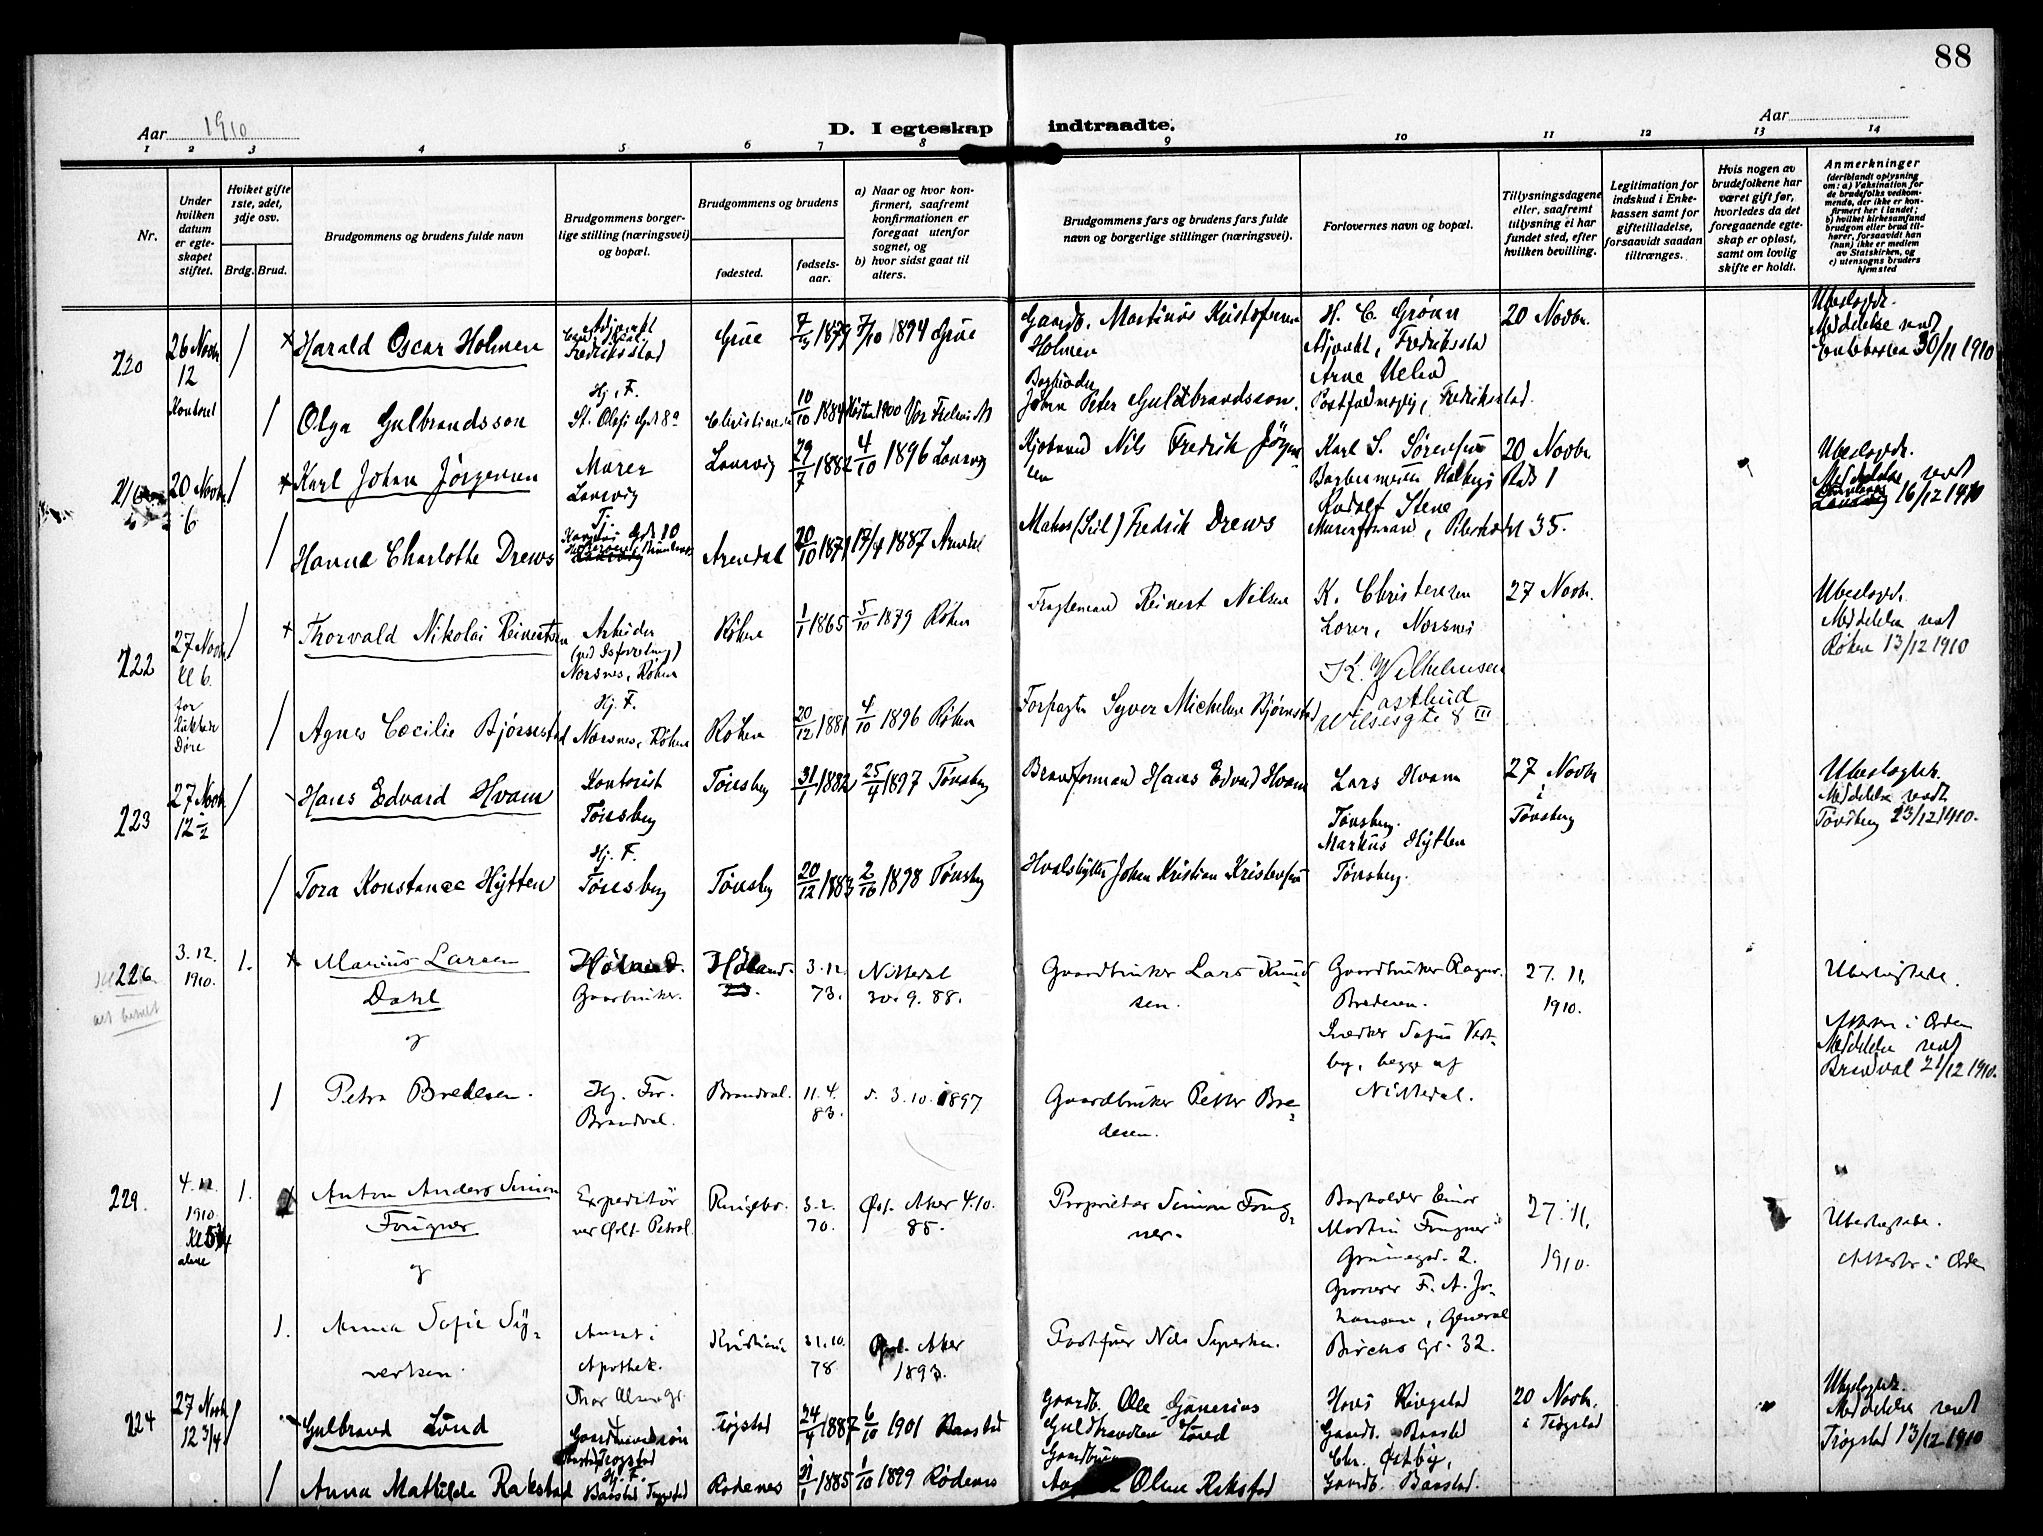 88
Aar 1910
D. I egteskap indtraadte.
Aar
1 2 3 4 5 6 7 8 9 10 11 12 13 14
Nr.
Under hvilken datum er egteskapet stiftet.
Hviket gifte 1ste, 2det, 3dje osv.
Brdg. Brud.
Brudgommens og brudens fulde navn
Brudgommens borgerlige stilling (næringsvei) og bopæl.
Brudgommens og brudens
fødested.
fødselsaar.
a) Naar og hvor konfirmert, saafremt konfirmationen er foregaat utenfor sognet, og
b) hvor sidst gaat til alters.
Brudgommens fars og brudens fars fulde navn og borgerlige stillinger (næringsvei).
Forlovernes navn og bopæl.
Tillysningsdagene eller, saafremt tillysning ei har fundet sted, efter hvilken bevilling.
Legitimation for indskud i Enkekassen samt for giftetilladelse, forsaavidt saadan tiltrænges.
Hvis nogen av brudefolkene har været gift før, hvorledes da det foregaaende egteskap er opløst, samt om lovlig skifte er holdt.
Anmerkninger (deriblandt oplysning om: a) Vaksination for de brudefolks vedkommende, der ikke er konfirmert her i landet; b) hvilket kirkesamfund brudgom eller brud tilhører, forsaavidt han (hun) ikke er medlem av Statskirken, og c) utensogns bruders hjemsted
220 26 Novbr 12 Kontoret / Harald Oscar Holmen Fredriksstad Grue 7/3 1879 7/10 1894 Grue Gaardb. Martinus Kristofersen Holmen H. C. Grønn Fredriksstad 20 Novbr. Ubeslægtede. Meddelelse sendt 30/11 1910
/ Olga Gulbrandsson Hj. F. St. Olafs Gd 8a Christiania 10/10 1884 1900 Vor Frelsers Johan Peter Gulbrandsson Arne Fredriksstad.
20 Novbr 6 / Karl Johan Jørgensen Murer Laurvig Laurvig 29/7 1882 4/10 1896 Laurvig Nils Fredrik Jørgensen Karl S. Sørensen 20 Novbr Ubeslægtede. Meddelelse sendt 16/12 1910
/ Hanne Charlotte Drews Tj. Arendal 20/10 1871 1887 Arendal Fredrik Drews Rudolf Stene 35.
222 27 Novbr Kl 6. for lukkede Døre / Thorvald Nikolai Reinertsen Arbeider Nærsnes, Røken Røken 1/1 1865 5/10 1879 Røken Fragtemand Reinert Nilsen K. Christensen Nærsnes 27 Novbr. Ubeslægtede. Meddelelse sendt Røken 13/12 1910
/ Agnes Cæcilie Bjørnstad Hj. F. Nærsnes, Røken Røken 20/12 1881 4/10 1896 Røken Forpagter Syver Michelsen Bjørnstad K. Wilhelmsen Wilsesgte 8 III
223 27 Novbr 12 1/2 / Hans Edvard Hvam Kontorist Tønsberg Tønsberg 31/1 1882 25/4 1897 Tønsberg Brandformand Hans Edvard Hvam Lars Hvam Tønsberg. 27 Novbr i Tønsberg Ubeslægtede. Meddelelse sendt Tønsberg 13/12 1910.
/ Tora Konstance Hytten Hj. F. Tønsberg Tønsberg 20/12 1883 2/10 1898 Tønsberg Johan Kristian Kristensen Markus Hytten Tønsberg.
226 3.12. 1910. 1. Marius Larsen Dahl Høland. Gaardbruker. Høland. 3.12. 73. Nittedal 30. 9. 88. Gaardbruker Lars Knudsen. Gaardbruker Ragnv. Bredesen. 27.11. 1910. Ubeslægtede. Attester i Orden Meddelelse sendt Brandval 21/12 1910.
og
1 Petra Bredesen. Hj. Fr. Brandval. Brandval. 11.4. 83. 3.10. 1897 Gaardbruker Petter Bredesen. Snedker Sofus Vestby, begge af Nittedal.
229. 4.12. 1910. 1. Anton Anders Simon Fougner Expeditør ved Østl. Petrol. Ringebu. 3.2. 70. Øst. Aker 4.10. 85. Proprietær Simon Fougner. Bogholder Einar Martin Fougner 2. 27.11. 1910. Ubeslægtede. Attester i Orden
og
1. Anna Sofie Syvertsen. Ansat i Apothek. Kristiania 31.10. 78. Øst. Aker 1893. Nils Syvertsen. Grosserer F. A. Johansen, General Birchs Gt. 32.
224 27 Novbr 12 3/4 / Gulbrand Lund Gaardmandssøn Trøgstad Trøgstad 24/4 1887 6/10 1901 Baastad Gaardb. Ole Gunerius Guldbrandsen Lund Hans Ringstad Gaardb. Baastad 20 Novbr. i Trøgstad Ubeslægtede. Meddelelse sendt Trøgstad 13/12 1910
/ Anna Mathilde Rakstad Hj. F. Baastad Trøgstad Rødenes 21/1 1885 1/10 1899 Rødenes Gaardbruger Olsen Rakstad Chr. Østby, Gaardb. Baastad.